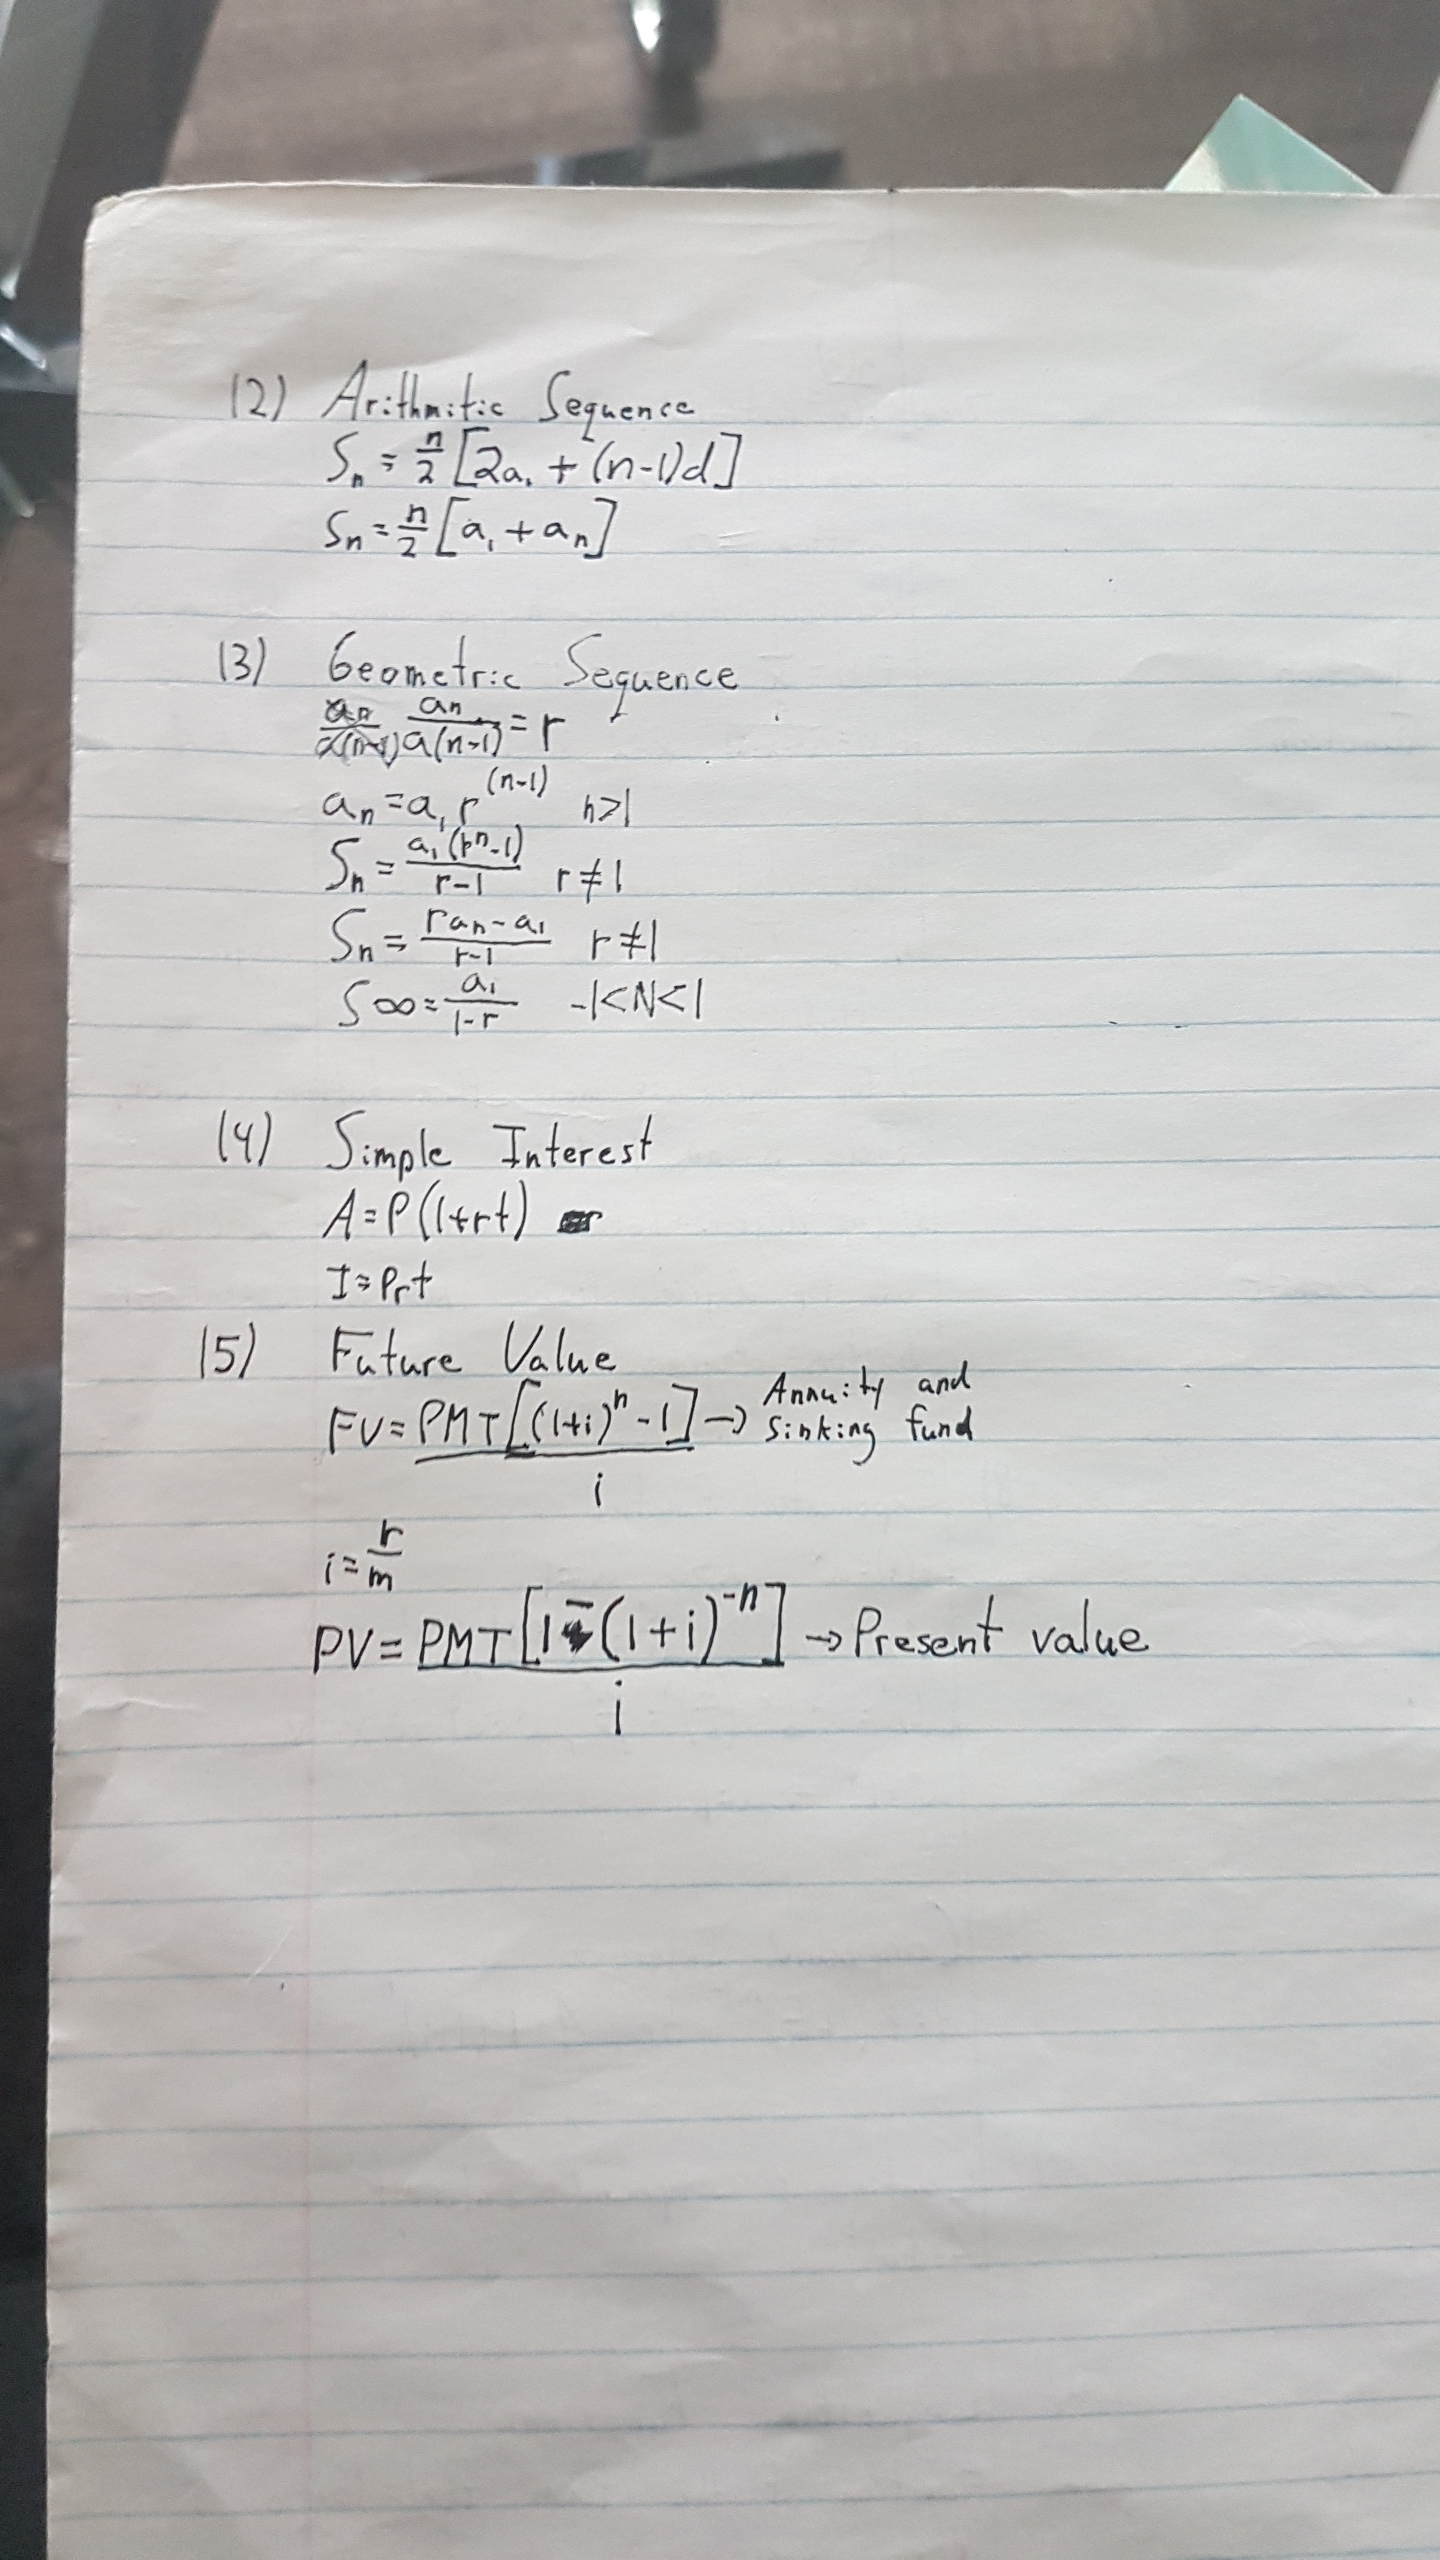 (2) Arithmitic Sequence
Sn = n/2 [2a₁ + (n-1)d]
Sn = n/2 [a₁ + an]
(3) Geometric Sequence
an/a(n-1) = r
an = a₁ r^(n-1) n>1
Sn = a₁(rⁿ-1)/r-1 r≠1
Sn = ran-a₁/r-1 r≠1
S∞ = a₁/1-r -1<N<1
(4) Simple Interest
A = P(1+rt)
I = Prt
(5) Future Value
FV = PMT[(1+i)ⁿ-1]/i → Annuity and Sinking fund
i = r/m
PV = PMT[1-(1+i)⁻ⁿ]/i → Present value